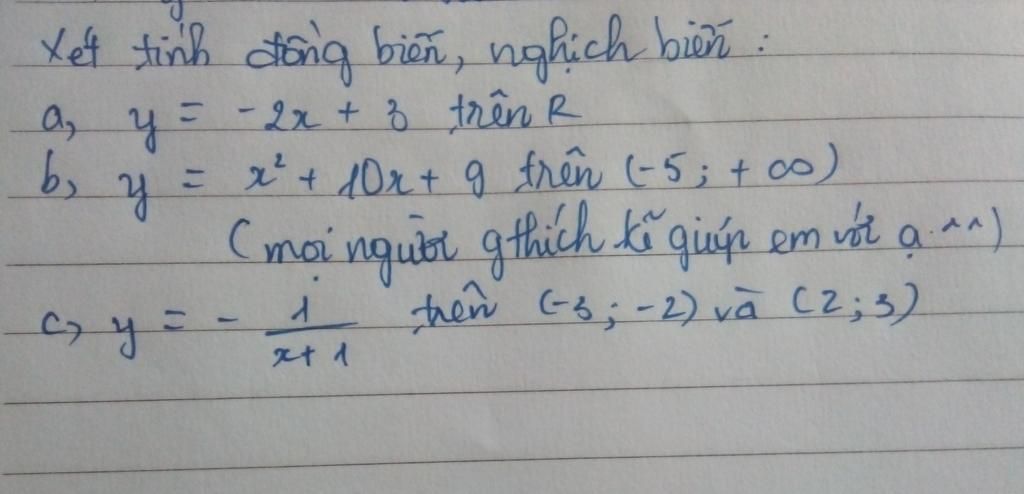 Xét tính đồng biến, nghịch biến :
a, y = -2x + 3 trên R
b, y = x² + 10x + 9 trên (-5; +∞)
(mọi người gthích kĩ giúp em với ạ ^^)
c, y = - \frac{1}{x+1} trên (-3; -2) và (2; 3)